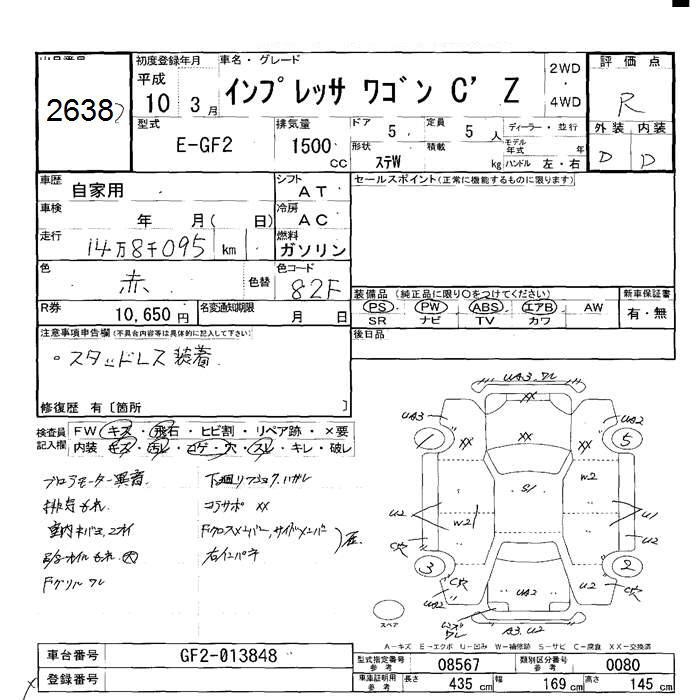 出品番号
2638
初度登録年月
平成
10 3月
車名・グレード
インプレッサ ワゴン C' Z
2WD
・
4WD
評価点
R
外装 内装
D D
型式
E-GF2
排気量
1500 CC
ドア 5
定員 5 人
ディーラー・並行
モデル年式 年
形状 ステW
積載 kg
ハンドル 左・右
車歴 自家用
シフト AT
セールスポイント(正常に機能するものに限ります)
車検 年 月( 日)
冷房 AC
走行 14万8千095 km
燃料 ガソリン
色 赤 色替
色コード 82F
R券 10,650円
名変通知期限 月 日
装備品(純正品に限り○をつけてください)
新車保証書
PS PW ABS エアB AW
SR ナビ TV カワ
有・無
後日品
注意事項申告欄(不具合内容等は具体的に記入して下さい)
。スタッドレス装着
修復歴 有〔箇所 〕
検査員記入欄
FW キズ・飛石・ヒビ割・リペア跡・×要
内装 キズ・汚レ・コゲ・穴・スレ・キレ・破レ
ブロアモーター異音
排気もれ
Fグリル ワレ
コアサポ XX
Fクロスメンバー,サイドメンバー
右インパネ
UA3.ワレ
XX
UA3
UA2
1
5
XX
XX
XX
S1
W2
U2
W2
U1
U2
C穴
C穴
3
2
UA2
C穴
UA2
U2
C穴
A3.U2
スペア
A－キズ E－エクボ U－凹み W－補修跡 S－サビ C－腐食 XX－交換済
車台番号 GF2-013848
登録番号
型式指定番号 参考 08567
類別区分番号 参考 0080
車庫証明用 参考
長さ 435 cm
幅 169 cm
高さ 145 cm